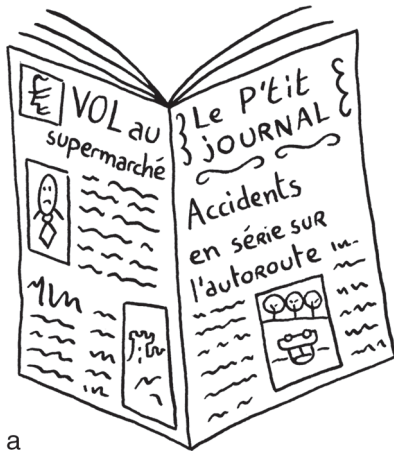 VOL au
supermarché
Le P'tit
JOURNAL
Accidents
en série sur
l'autoroute
a